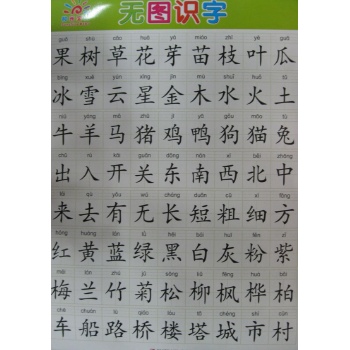 无图识字
guǒ shù cǎo huā yá miáo zhī yè guā
果 树 草 花 芽 苗 枝 叶 瓜
bīng xuě yún xīng jīn mù shuǐ huǒ tǔ
冰 雪 云 星 金 木 水 火 土
niú yáng mǎ zhū jī yā gǒu māo tù
牛 羊 马 猪 鸡 鸭 狗 猫 兔
chū rù kāi guān dōng nán xī běi zhōng
出 入 开 关 东 南 西 北 中
lái qù yǒu wú cháng duǎn cū xì fāng
来 去 有 无 长 短 粗 细 方
hóng huáng lán lǜ hēi bái huī fěn zǐ
红 黄 蓝 绿 黑 白 灰 粉 紫
méi lán zhú jú sōng liǔ fēng huà bǎi
梅 兰 竹 菊 松 柳 枫 桦 柏
chē chuán lù qiáo lóu tǎ chéng shì cūn
车 船 路 桥 楼 塔 城 市 村